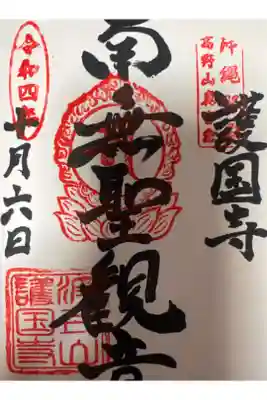 沖縄
高野山
護国寺
南無聖観音
令和四年
十月六日
波上山
護国寺